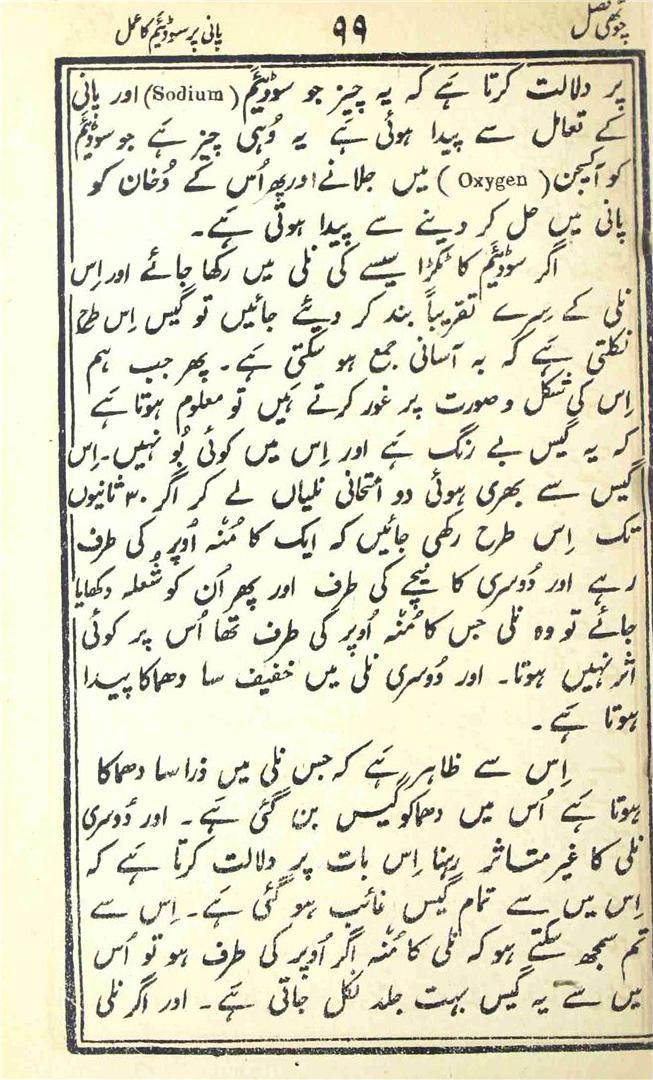 چوتھی فصل ۹۹ پانی پر سوڈیَم کا عمل
پر دلالت کرتا ہَے کہ یہ چیز جو سوڈیَم (Sodium) اور پانی
کے تعامل سے پیدا ہوئی ہے یہ وُہی چیز ہَے جو سوڈیَم
کو آکسیجن ( Oxygen ) میں جلانے اور پھر اُس کے دُخان کو
پانی میں حل کر دینے سے پیدا ہوتی ہَے۔
اگر سوڈیَم کا ٹکڑا سیسے کی نلی میں رکھا جائے اور اِس
نلی کے سِرے تقریباً بند کر دیئے جائیں تو گیس اِس طرح
نکلتی ہَے کہ بہ آسانی جمع ہو سکتی ہَے۔ پھر جب ہم
اِس کی شکل و صورت پر غور کرتے ہَیں تو معلوم ہوتا ہَے
کہ یہ گیس بے رنگ ہَے اور اِس میں کوئی بُو نہیں۔ اِس
گیس سے بھری ہوئی دو امتحانی نلیاں لے کر اگر ۳۰ ثانیوں
تک اِس طرح رکھی جائیں کہ ایک کا مُنْہ اُوپر کی طرف
رہے اور دُوسری کا نیچے کی طرف اور پھر اُن کو شُعلہ دکھایا
جائے تو وہ نلی جس کا مُنْہ اُوپر کی طرف تھا اُس پر کوئی
اثر نہیں ہوتا۔ اور دُوسری نلی میں خفیف سا دھماکا پیدا
ہوتا ہَے۔
اِس سے ظاہر ہَے کہ جس نلی میں ذرا سا دھماکا
ہوتا ہَے اُس میں دھماکو گیس بن گئی ہَے۔ اور دُوسری
نلی کا غیر متاثر رہنا اِس بات پر دلالت کرتا ہَے کہ
اِس میں سے تمام گیس غائب ہو گئی ہَے۔ اِس سے
تم سمجھ سکتے ہو کہ نلی کا مُنْہ اگر اُوپر کی طرف ہو تو اُس
میں سے یہ گیس بہت جلد نکل جاتی ہَے۔ اور اگر نلی